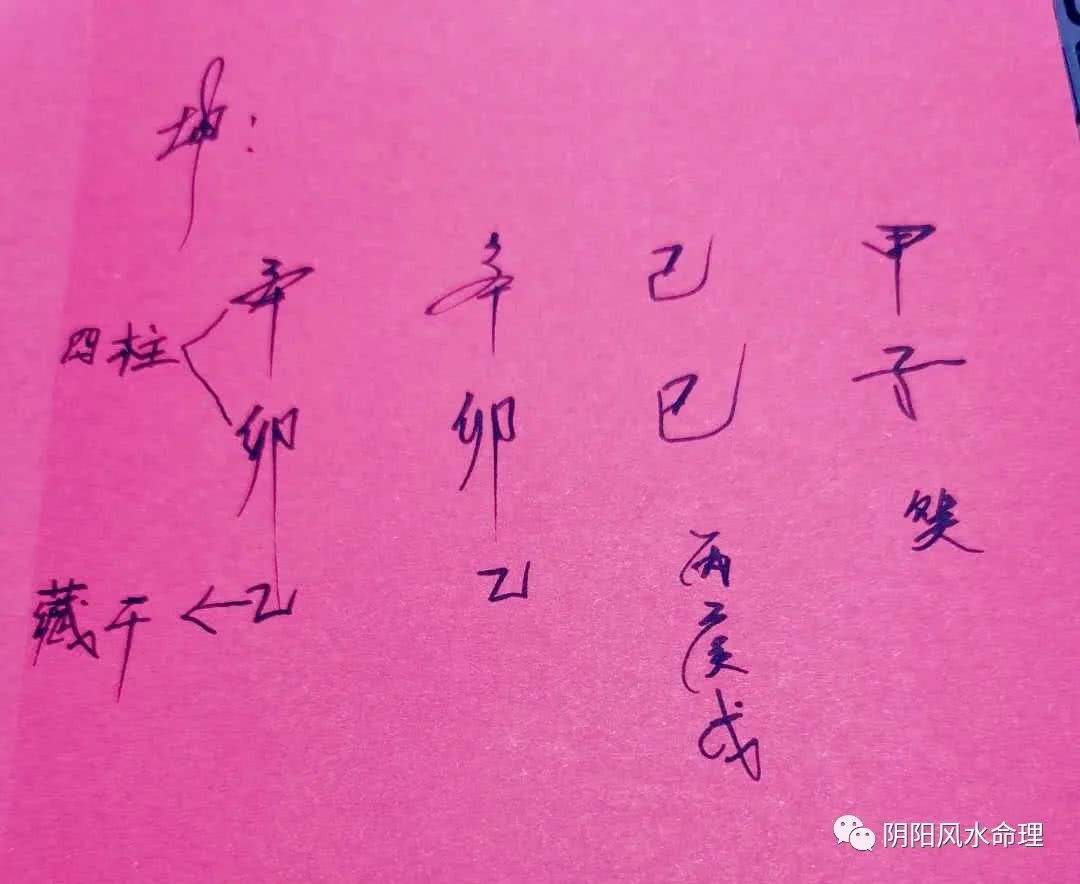 坤:
辛 辛 己 甲
四柱
卯 卯 巳 子
癸
藏干 ← 乙 乙 丙
庚
戊
阴阳风水命理